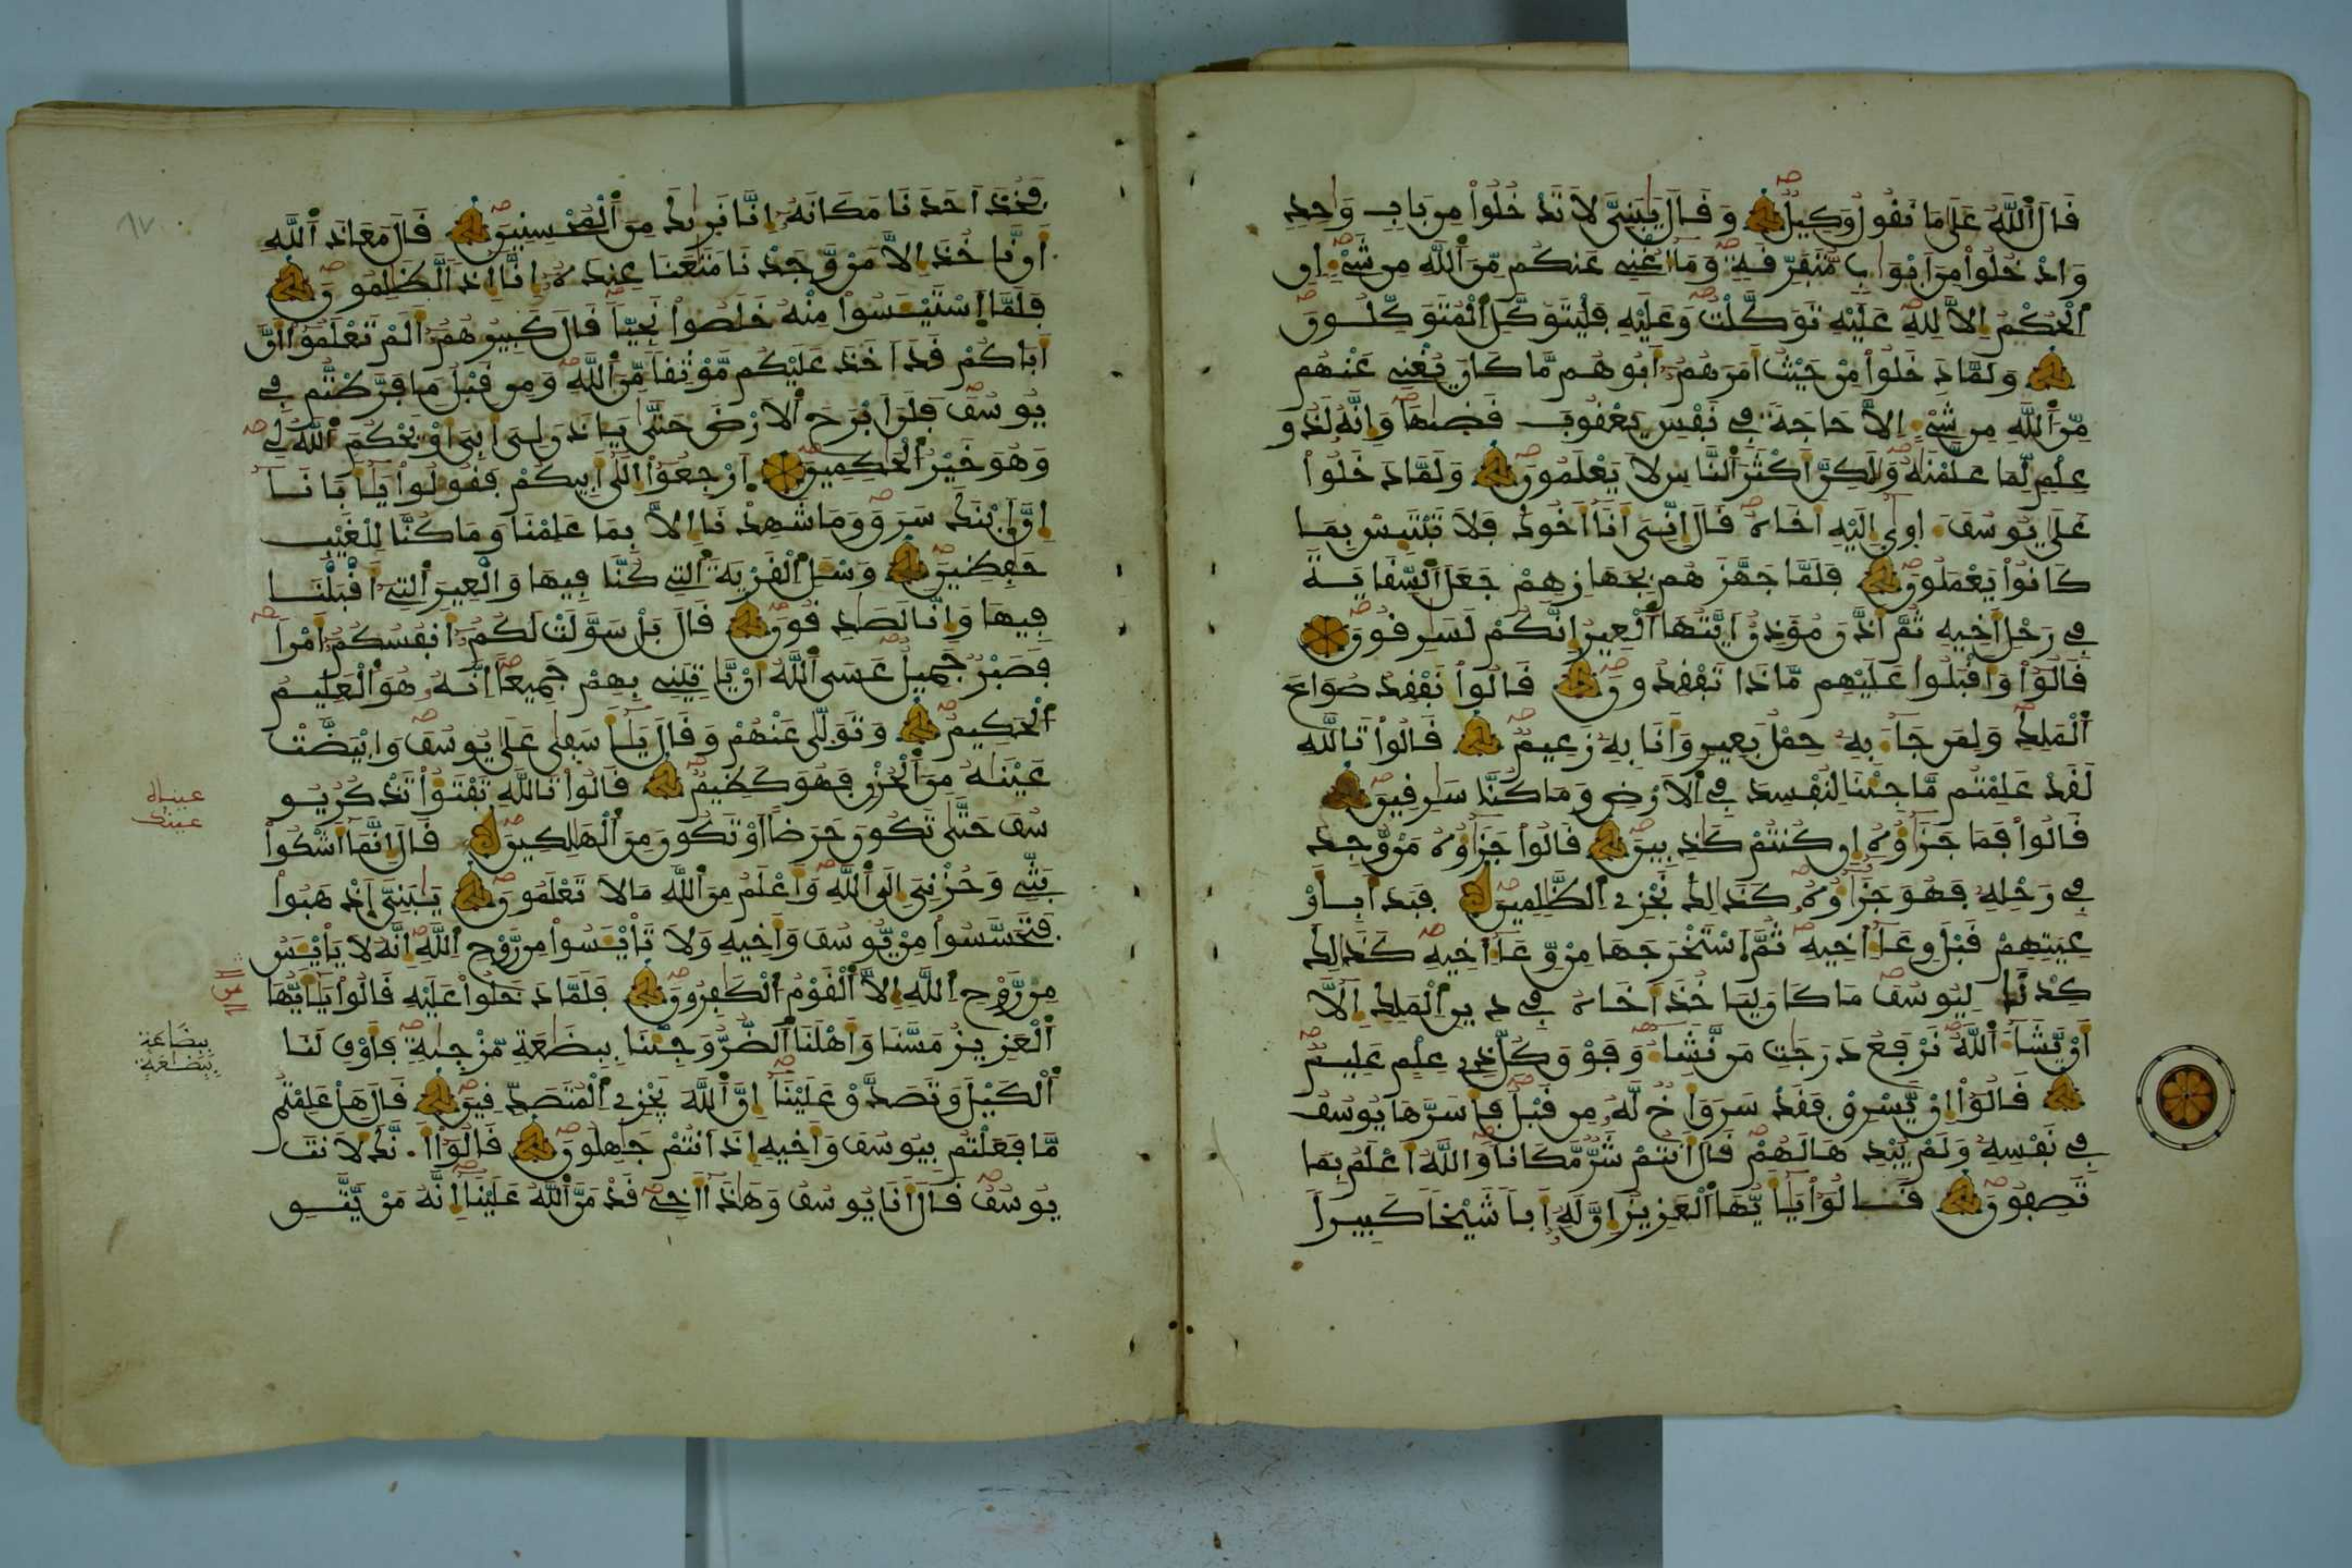 قَالَ ٱللَّهُ عَلَىٰ مَا نَقُولُ وَكِيلٌ وَقَالَ يَٰبَنِىَّ لَا تَدْخُلُوا۟ مِنۢ بَابٍ وَٰحِدٍ
وَادْخُلُوا۟ مِنَ ابْوَٰبٍ مُّتَفَرِّقَةٍ وَمَآ أُغْنِے عَنكُم مِّنَ ٱللَّهِ مِن شَےْءٍ اِنِ
اِ۬لْحُكْمُ إِلَّا لِلهِ عَلَيْهِ تَوَكَّلْتُ وَعَلَيْهِ فَلْيَتَوَكَّلِ اِ۬لْمُتَوَكِّلُونَ
وَلَمَّا دَخَلُوا۟ مِنْ حَيْثُ أَمَرَهُمُۥٓ أَبُوهُم مَّا كَانَ يُغْنِے عَنْهُم
مِّنَ ٱللَّهِ مِن شَےْءٍ اِلَّا حَاجَةً فِے نَفْسِ يَعْقُوبَ قَضَىٰهَا وَإِنَّهُۥ لَذُو
عِلْمٍ لِّمَا عَلَّمْنَٰهُ وَلَٰكِنَّ أَكْثَرَ ٱلنَّاسِ لَا يَعْلَمُونَ وَلَمَّا دَخَلُوا۟
عَلَىٰ يُوسُفَ ءَاو۪ىٰٓ إِلَيْهِ أَخَاهُ قَالَ إِنِّىَ أَنَا أَخُوكَ فَلَا تَبْتَئِسْ بِمَا
كَانُوا۟ يَعْمَلُونَ فَلَمَّا جَهَّزَهُم بِجَهَازِهِمْ جَعَلَ ٱلسِّقَايَةَ
فِے رَحْلِ أَخِيهِ ثُمَّ أَذَّنَ مُؤَذِّنٌ اَيَّتُهَا ٱلْعِيرُ إِنَّكُمْ لَسَٰرِقُونَ
قَالُوا۟ وَأَقْبَلُوا۟ عَلَيْهِم مَّاذَا تَفْقِدُونَ قَالُوا۟ نَفْقِدُ صُوَاعَ
ٱلْمَلِكِ وَلِمَن جَآءَ بِهِۦ حِمْلُ بَعِيرٍ وَأَنَا بِهِۦ زَعِيمٌ قَالُوا۟ تَاللَّهِ
لَقَدْ عَلِمْتُم مَّا جِئْنَا لِنُفْسِدَ فِے اِ۬لَارْضِ وَمَا كُنَّا سَٰرِقِينَ
قَالُوا۟ فَمَا جَزَٰٓؤُهُۥٓ إِن كُنتُمْ كَٰذِبِينَ قَالُوا۟ جَزَٰٓؤُهُۥ مَنْ وُّجِدَ
فِے رَحْلِهِۦ فَهُوَ جَزَٰٓؤُهُۥ كَذَٰلِكَ نَجْزِے اِ۬لظَّٰلِمِينَ فَبَدَأَ بِأَوْ
عِيَتِهِمْ قَبْلَ وِعَآءِ اَخِيهِ ثُمَّ اَسْتَخْرَجَهَا مِنْ وِّعَآءِ اَخِيهِ كَذَٰلِكَ
كِدْنَا لِيُوسُفَ مَا كَانَ لِيَاخُذَ أَخَاهُ فِے دِينِ اِ۬لْمَلِكِ إِلَّآ
أَنْ يَّشَآءَ ٱللَّهُ نَرْفَعُ دَرَجَٰتِ مَن نَّشَآءُ وَفَوْقَ كُلِّ ذِے عِلْمٍ عَلِيمٌ
قَالُوٓا۟ إِنْ يَّسْرِقْ فَقَدْ سَرَقَ أَخٌ لَّهُۥ مِن قَبْلُ فَأَسَرَّهَا يُوسُفُ
فِے نَفْسِهِۦ وَلَمْ يُبْدِهَا لَهُمْ قَالَ أَنتُمْ شَرٌّ مَّكَانًا وَاللَّهُ أَعْلَمُ بِمَا
تَصِفُونَ قَالُوا۟ يَٰٓأَيُّهَا ٱلْعَزِيزُ إِنَّ لَهُۥٓ أَبًا شَيْخًا كَبِيرًا
فَخُذَ اَحَدَنَا مَكَانَهُۥٓ إِنَّا نَر۪ىٰكَ مِنَ ٱلْمُحْسِنِينَ قَالَ مَعَاذَ ٱللَّهِ
أَن نَّاخُذَ إِلَّا مَنْ وَّجَدْنَا مَتَٰعَنَا عِندَهُۥٓ إِنَّآ إِذًا لَّظَٰلِمُونَ
فَلَمَّا اَسْتَيْـَٔسُوا۟ مِنْهُ خَلَصُوا۟ نَجِيًّا قَالَ كَبِيرُهُمُۥٓ أَلَمْ تَعْلَمُوٓا۟ أَنَّ
أَبَاكُمْ قَدَ اَخَذَ عَلَيْكُم مَّوْثِقًا مِّنَ ٱللَّهِ وَمِن قَبْلُ مَا فَرَّطتُّمْ فِے
يُوسُفَ فَلَنَ اَبْرَحَ ٱلَارْضَ حَتَّىٰ يَاذَنَ لِىَ أَبِىَ أَوْ يَحْكُمَ ٱللَّهُ لِے
وَهُوَ خَيْرُ ٱلْحَٰكِمِينَ اَ۪رْجِعُوٓا۟ إِلَىٰٓ أَبِيكُمْ فَقُولُوا۟ يَٰٓأَبَانَآ
إِنَّ اَبْنَكَ سَرَقَ وَمَا شَهِدْنَآ إِلَّا بِمَا عَلِمْنَا وَمَا كُنَّا لِلْغَيْبِ
حَٰفِظِينَ وَسْـَٔلِ اِ۬لْقَرْيَةَ ٱلتِے كُنَّا فِيهَا وَالْعِيرَ ٱلتِےٓ أَقْبَلْنَا
فِيهَا وَإِنَّا لَصَٰدِقُونَ قَالَ بَلْ سَوَّلَتْ لَكُمُۥٓ أَنفُسُكُمُۥٓ أَمْرًا
فَصَبْرٌ جَمِيلٌ عَسَى ٱللَّهُ أَنْ يَّاتِيَنِے بِهِمْ جَمِيعًا اِنَّهُۥ هُوَ ٱلْعَلِيمُ
ٱلْحَكِيمُ وَتَوَلَّىٰ عَنْهُمْ وَقَالَ يَٰٓأَسَفَىٰ عَلَىٰ يُوسُفَ وَابْيَضَّتْ
عَيْنَٰهُ مِنَ ٱلْحُزْنِ فَهُوَ كَظِيمٌ قَالُوا۟ تَاللَّهِ تَفْتَؤُا۟ تَذْكُرُ يُو
سُفَ حَتَّىٰ تَكُونَ حَرَضًا اَوْ تَكُونَ مِنَ ٱلْهَٰلِكِينَ قَالَ إِنَّمَآ أَشْكُوا۟
بَثِّے وَحُزْنِىَ إِلَى ٱللَّهِ وَأَعْلَمُ مِنَ ٱللَّهِ مَا لَا تَعْلَمُونَ يَٰبَنِىَّ اَذْهَبُوا۟
فَتَحَسَّسُوا۟ مِنْ يُّوسُفَ وَأَخِيهِ وَلَا تَاْيْـَٔسُوا۟ مِن رَّوْحِ اِ۬للَّهِ إِنَّهُۥ لَا يَاْيْـَٔسُ
مِن رَّوْحِ اِ۬للَّهِ إِلَّا ٱلْقَوْمُ ٱلْكَٰفِرُونَ فَلَمَّا دَخَلُوا۟ عَلَيْهِ قَالُوا۟ يَٰٓأَيُّهَا
ٱلْعَزِيزُ مَسَّنَا وَأَهْلَنَا ٱلضُّرُّ وَجِئْنَا بِبِضَٰعَةٍ مُّزْج۪ىٰةٍ فَأَوْفِ لَنَا
ٱلْكَيْلَ وَتَصَدَّقْ عَلَيْنَآ إِنَّ ٱللَّهَ يَجْزِے اِ۬لْمُتَصَدِّقِينَ قَالَ هَلْ عَلِمْتُم
مَّا فَعَلْتُم بِيُوسُفَ وَأَخِيهِ إِذَ اَنتُمْ جَٰهِلُونَ قَالُوٓا۟ أَ۟نَّكَ لَأَنتَ
يُوسُفُ قَالَ أَنَا يُوسُفُ وَهَٰذَآ أَخِے قَدْ مَنَّ ٱللَّهُ عَلَيْنَآ إِنَّهُۥ مَنْ يَّتَّقِ
عيناه
عينك
ببضاعة
ببضعة